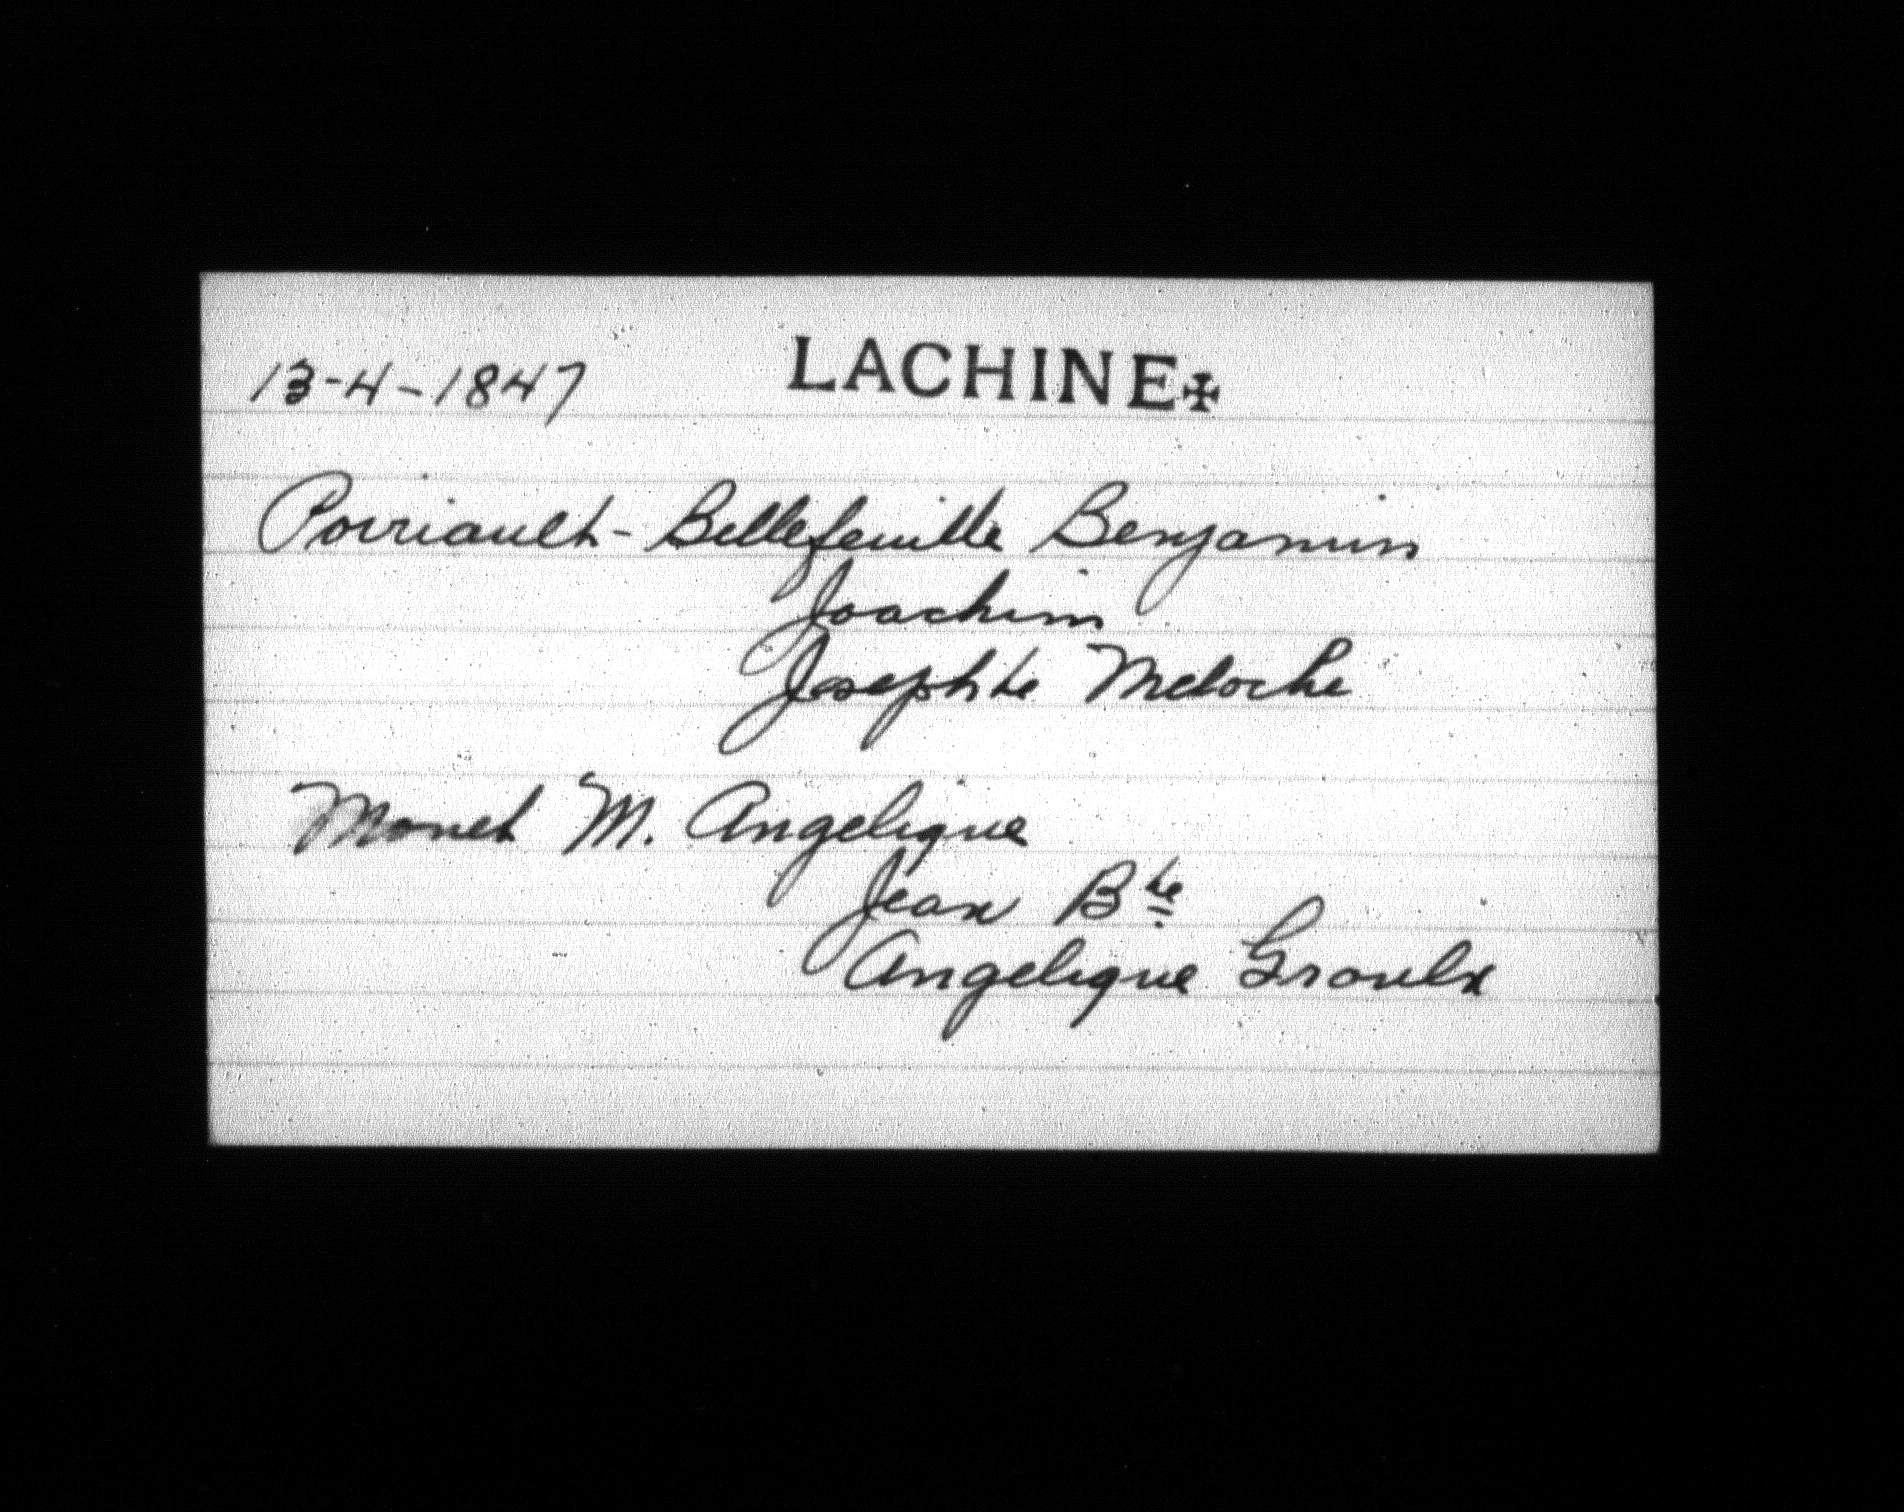 13-4-1847 LACHINE✠
Poirriault-Bellefeuille Benjamin
Joachim
Josephte Meloche
Monet M. Angelique
Jean Bte
Angelique Groulx